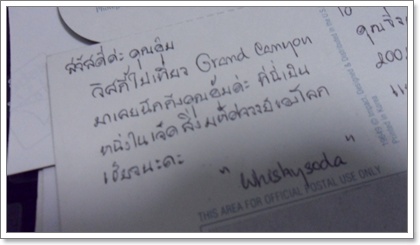 สวัสดีค่ะ คุณอุ้ม
วิสกี้ไปเที่ยว Grand Canyon
มาเลยนึกถึงคุณอุ้มค่ะ ที่นี่เป็น
หนึ่งในเจ็ดสิ่งมหัศจรรย์ของโลก
เชียวนะคะ
"Whiskysoda"
THIS AREA FOR OFFICIAL POSTAL USE ONLY
10
200